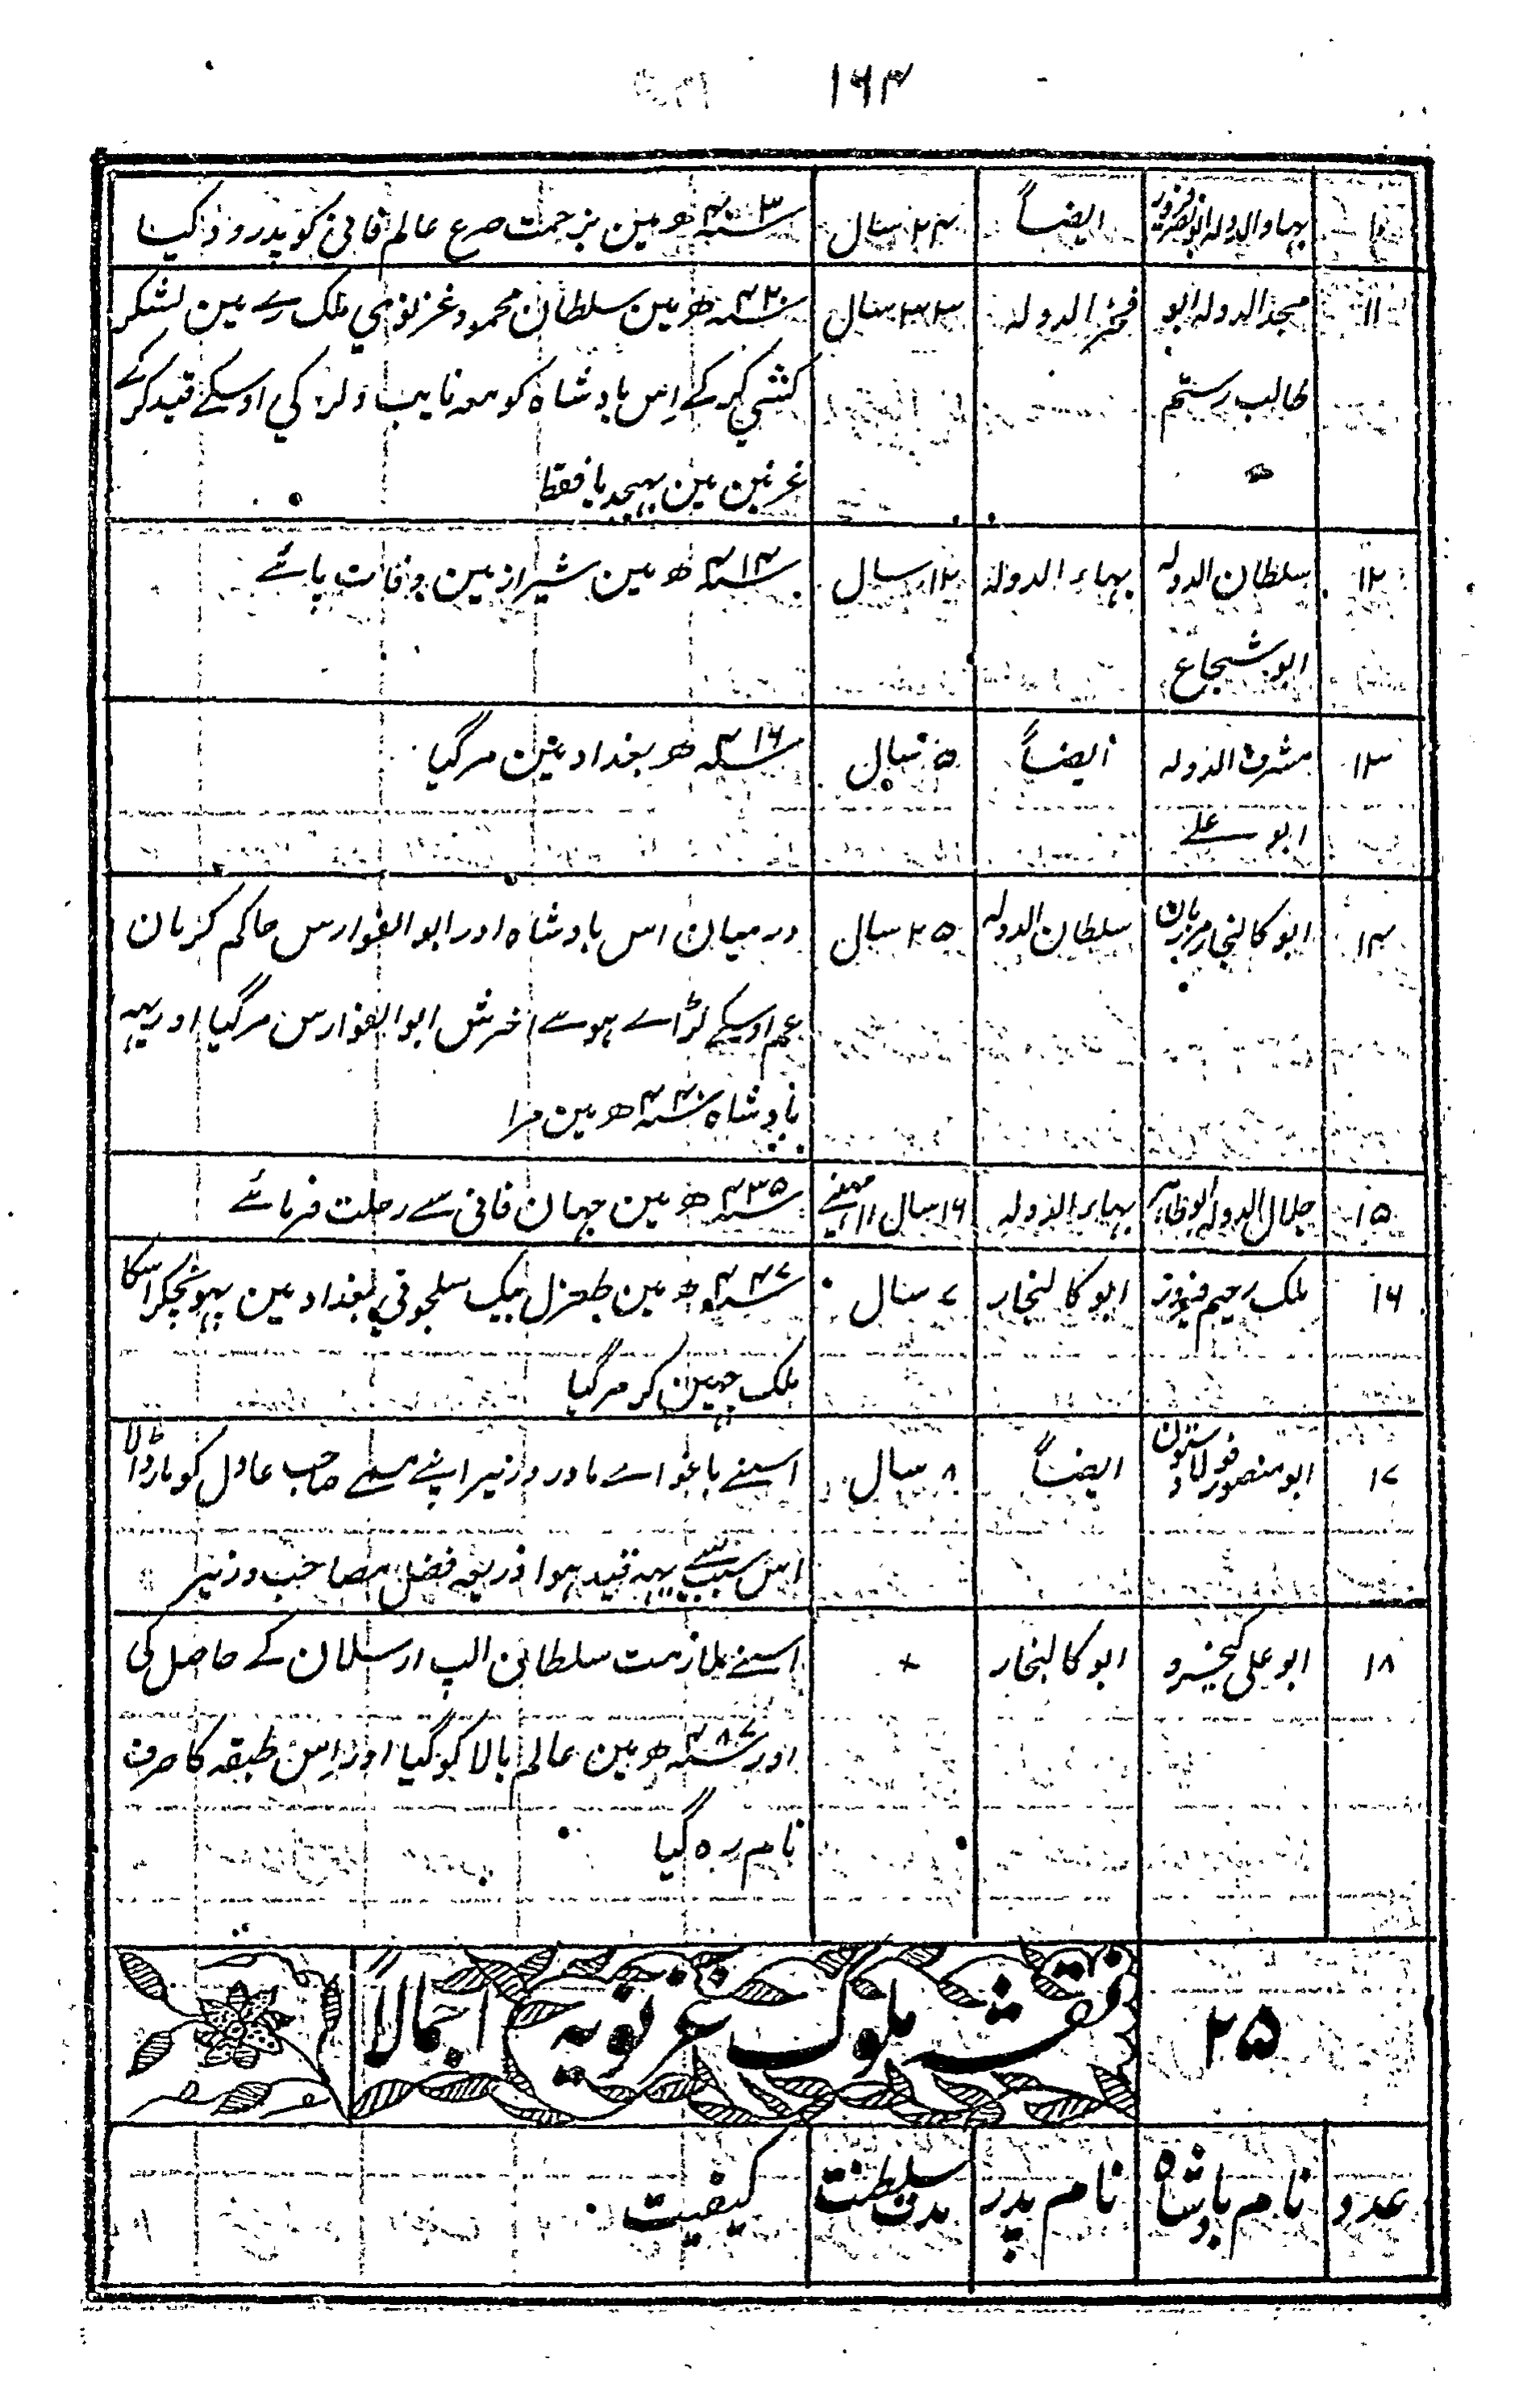 ۱۶۴
۱۰ بہاو الدولہ ابونصر فیروز ایضاً ۲۴ سال سنہ ۴۰۳ ھ مین بزحمت صرع عالم فانی کو پدرود کیا
۱۱ مجد الدولہ ابو فخر الدولہ ۳۳ سال سنہ ۴۲۰ ھ مین سلطان محمود غزنوی ملک رے مین لشکر
طالب رستم کشی کر کے اِس بادشاہ کو معہ نایب و لڑ کی اوسکے قید کر کے
غزنین مین بہیجدیا فقط
۱۲ سلطان الدولہ بہاء الدولہ ۱۲ سال سنہ ۴۱۴ ھ مین شیراز مین وفات پائے
ابو شجاع
۱۳ مشرف الدولہ ایضاً ۵ سال سنہ ۴۱۶ ھ بغداد مین مرگیا
ابو علے
۱۴ ابو کالنجار مرزبان سلطان الدولہ ۲۵ سال درمیان اس بادشاہ اور ابو الفوارس حاکم کرمان
عم اوسکے لڑاے ہوے اخرش ابو الفوارس مرگیا اور یہہ
بادشاہ سنہ ۴۴۰ ھ مین مرا
۱۵ جلال الدولہ ابوطاہر بہاء الدولہ ۱۶ سال ۱۱ مہینے سنہ ۴۳۵ ھ مین جہان فانی سے رحلت فرمائے
۱۶ ملک رحیم فیروز ابو کالنجار ۷ سال سنہ ۴۴۷ ھ مین طغرل بیک سلجوقی بغداد مین پہونچکر اسکا
ملک چہین کر مرگیا
۱۷ ابو منصور فولاد ستون ایضاً ۸ سال اسنے باغواے مادر وزیر اپنے مسمے صاحب عادل کو مارڈالا
اس سبب سے یہہ قید ہوا ذریعہ فضل مصاحب وزیر
۱۸ ابو علی کیخسرو ابو کالنجار + اسنے ملازمت سلطان الپ ارسلان کے حاصل کی
اور سنہ ۴۸۷ ھ مین عالم بالا کو گیا اور اِس طبقہ کا صرف
نام رہ گیا
۲۵ نقشہ ملوک غزنویہ اجمالاً
عدد نام بادشاہ نام پدر مدت سلطنت کیفیت